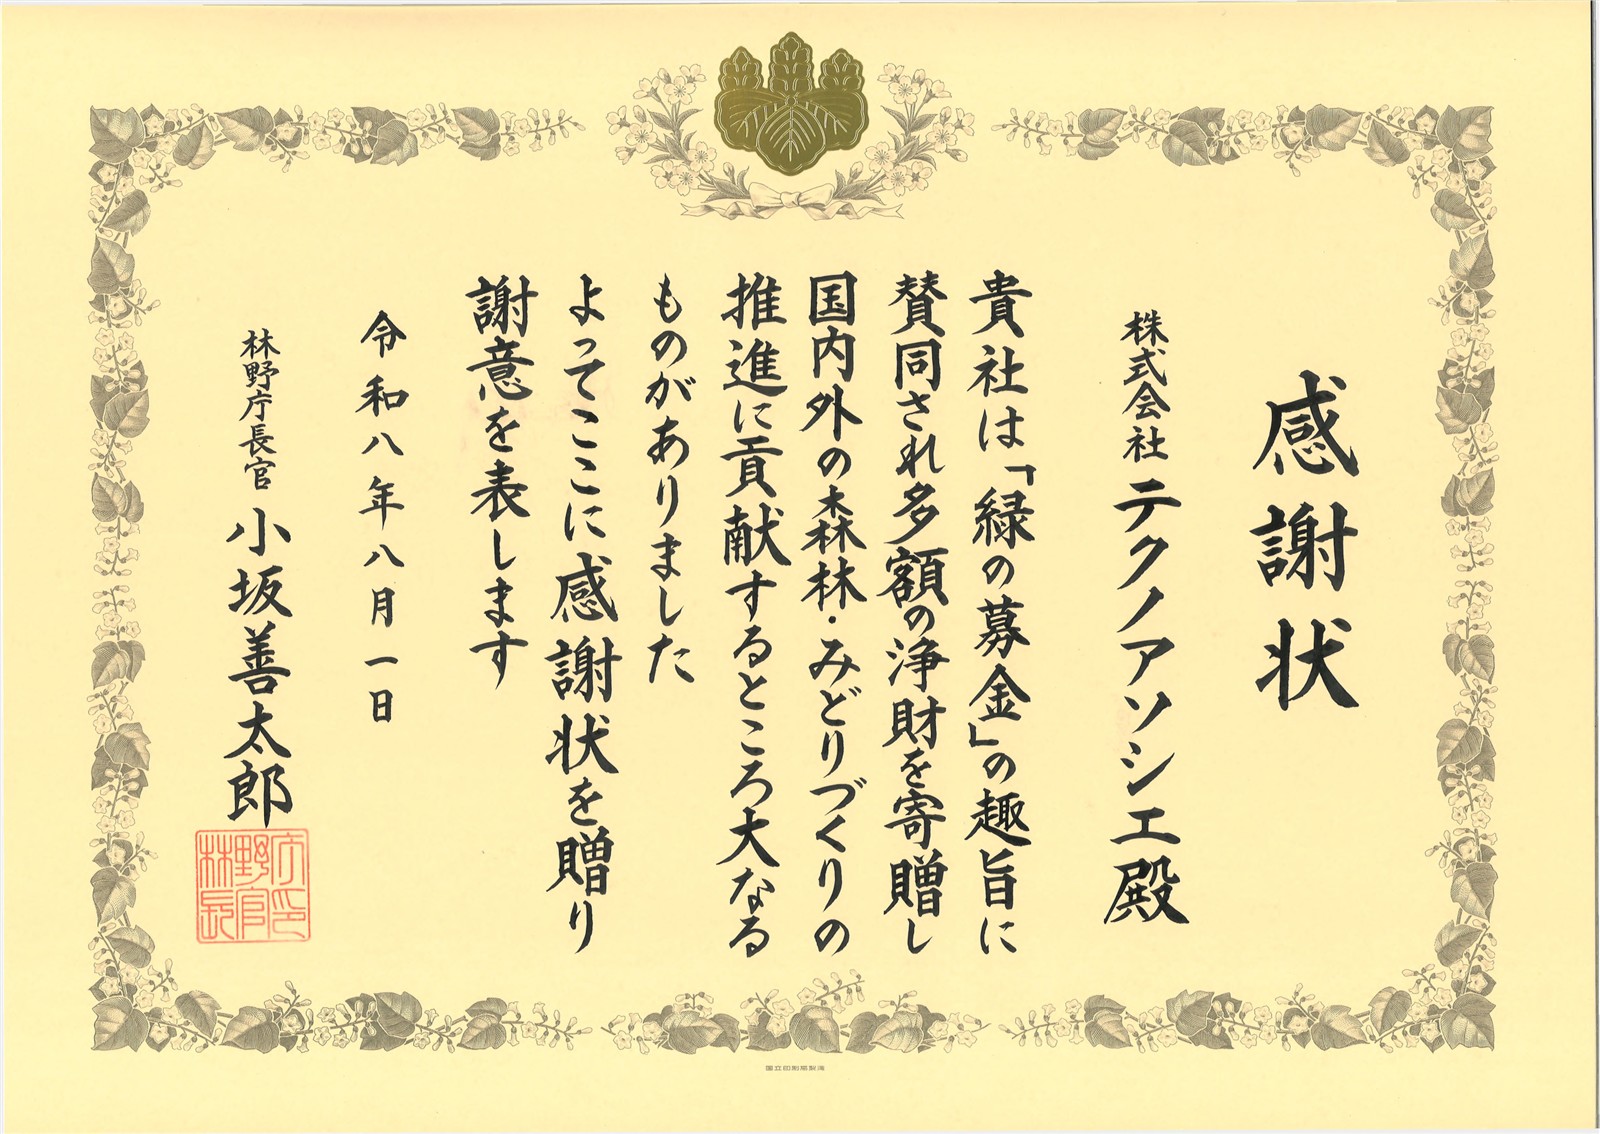 感謝状
株式会社テクノアソシエ殿
貴社は「緑の募金」の趣旨に
賛同され多額の浄財を寄贈し
国内外の森林・みどりづくりの
推進に貢献するところ大なる
ものがありました
よってここに感謝状を贈り
謝意を表します
令和八年八月一日
林野庁長官 小坂善太郎
林野庁長官印
国立印刷局製造